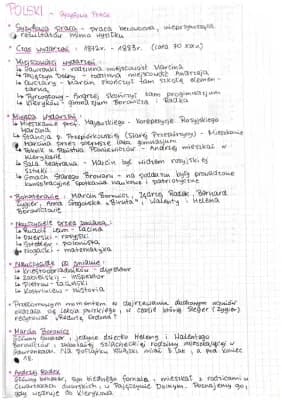 POLSKI - Syzyfowe Prace
• Syzyfowa praca - praca bezowocna, nieprzynosząca rezultatów mimo wysiłku
• Czas wydarzeń : 1872r. - 1883r. (
• Miejscowości wydarzeń :
↳ Gawronki - rodzinna miejscowość Marcina
↳ Pajęczyn Dolny - rodzinna miejscowość Andrzeja
↳ Owczary - Marcin skończył tam szkołę elemen-
tarną
↳ Pyrzogłowy - Andrzej skończył tam progimnazjum
↳ Kleryków - gimnazjum Borowicza i Radka
• Miejsca wydarzeń :
↳ Mieszkanie prof. Majewskiego - korepetycje rosyjskiego
Marcina
↳ Stancja p. Przepiórkowskiej (Starej Przepiórzycy) - Mieszkanie
Marcina przez pierwsze lata gimnazjum
↳ Pokój u państwa Płoniewiczów - Andrzej mieszkał w
Klerykowie
↳ Sala teatralna - Marcin był widzem rosyjskiej
sztuki
↳ Gmach Starego Browaru - na poddaszu były prowadzone
konspiracyjne spotkania naukowe i patriotyczne
• Bohaterowie : Marcin Borowicz, Jędrzej Radek, Bernard
Zygier, Anna Stogowska "Biruta", Walenty i Helena
Borowiczowie
• Nauczyciele przed zmianą :
↳ Rudolf Leim - łacina
↳ - rosyjski
↳ Sztetter - polonista
↳ Nogacki - matematyka
• Nauczyciele po zmianie :
↳ Kriestoobriadnikow - dyrektor
↳ Zabielskij - inspektor
↳ Pietrow - łaciński
↳ Kostriulew - historia
• Przełomowym momentem w dojrzewaniu duchowym uczniów
okazała się lekcja polskiego, w czasie której Sieger (Zygier)
recytował „Redutę Ordona"
• Marcin Borowicz
Główny bohater, jedyne dziecko Heleny i Walentego
Borowiczów, szlacheckiej rodziny mieszkającej w
Gawronkach. Na początku książki miał 8 lat, a pod koniec
18.
• Andrzej Radek
Główny bohater, syn biednego fornala, mieszkał z rodzicami w
czworakach dworskich, w Pajęczynie Dolnym. Poznajemy go,
gdy wędruje do Klerykowa.